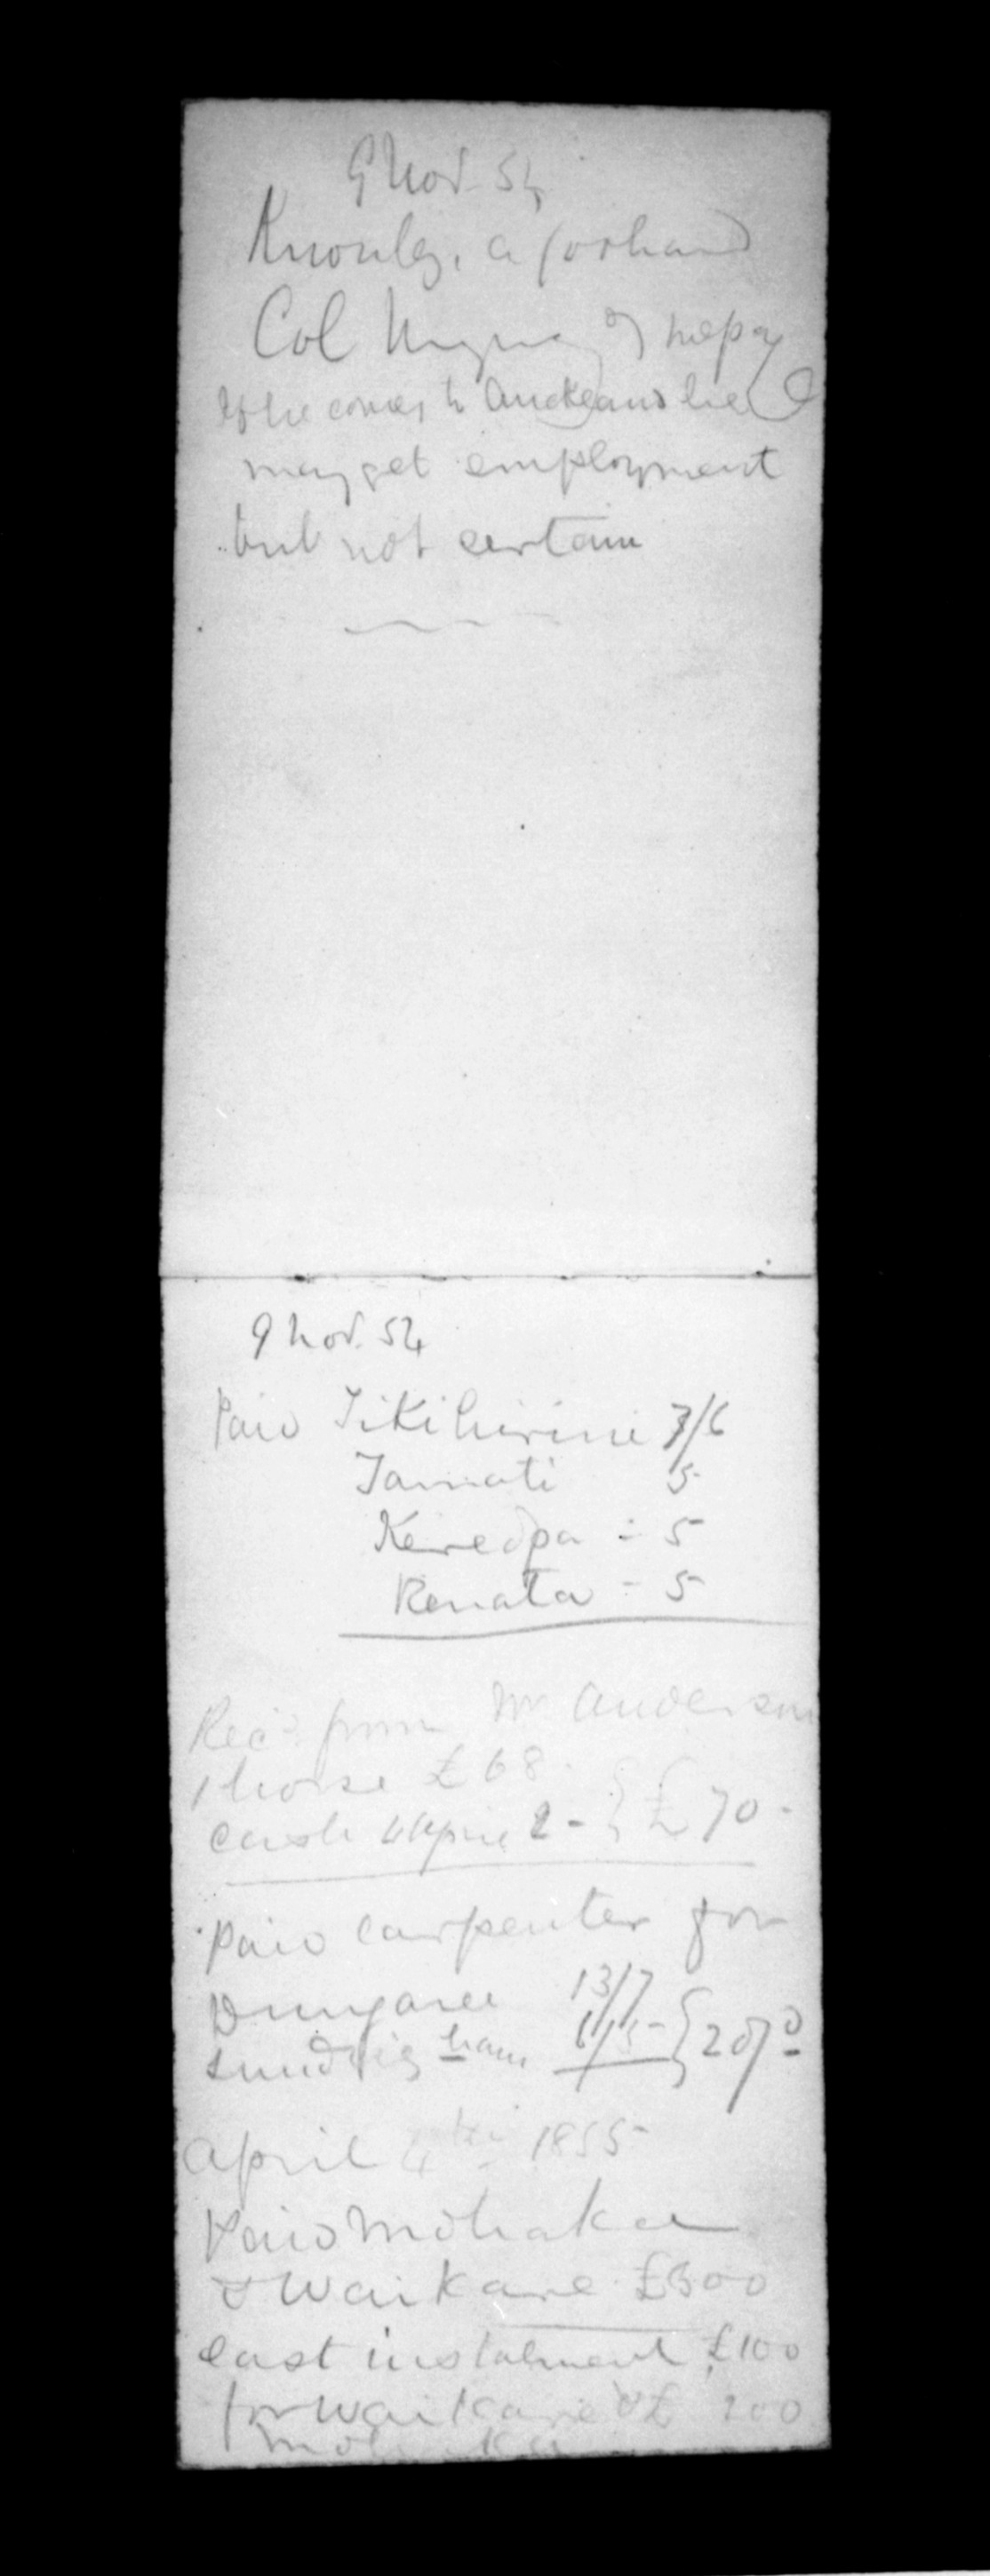 9 Nov. 54
Knowles, a
Col of
If he comes to Auckland he
may get employment
but not certain
9 Nov. 54
Paid Tikihirini 7/6
Tamati 5
Kereopa - 5
Renata - 5
Rec'd from Mr Anderson
1 horse £68.
cash 2 - } £70 -
Paid carpenter for
Dungaree 13/7
sundries
April 4th 1855
Paid Mohaka
& Waikare £300
last instalment £100
for Waikare & £ 200
Mohaka